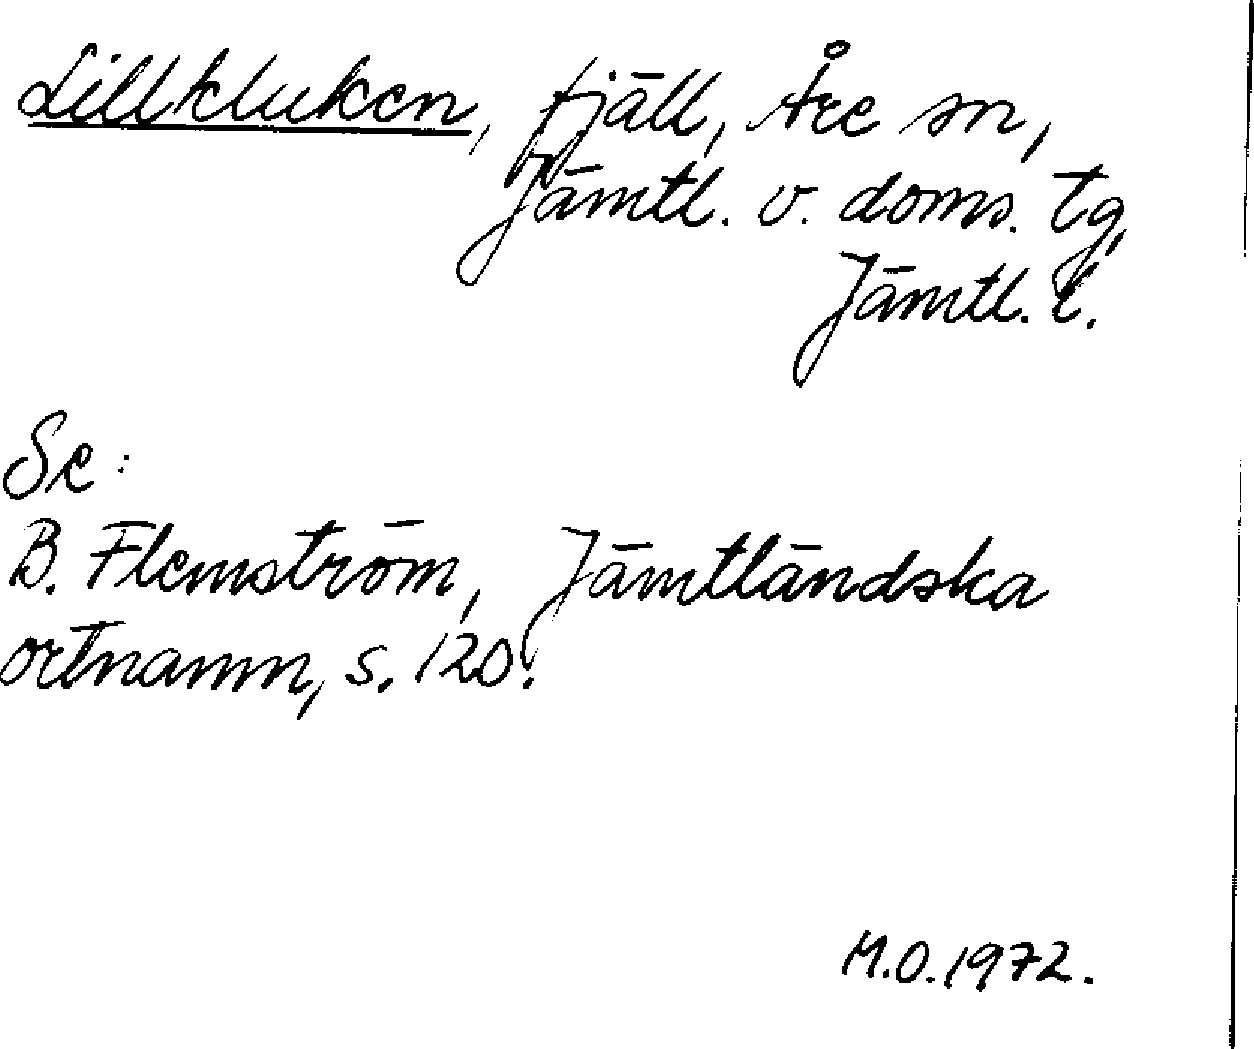 Lillkluken, fjäll, Åre sn,
Jämtl. v. doms. tg,
Jämtl. l.
Se:
B. Flemström, Jämtländska
ortnamn, s. 120.
M.O.1972.